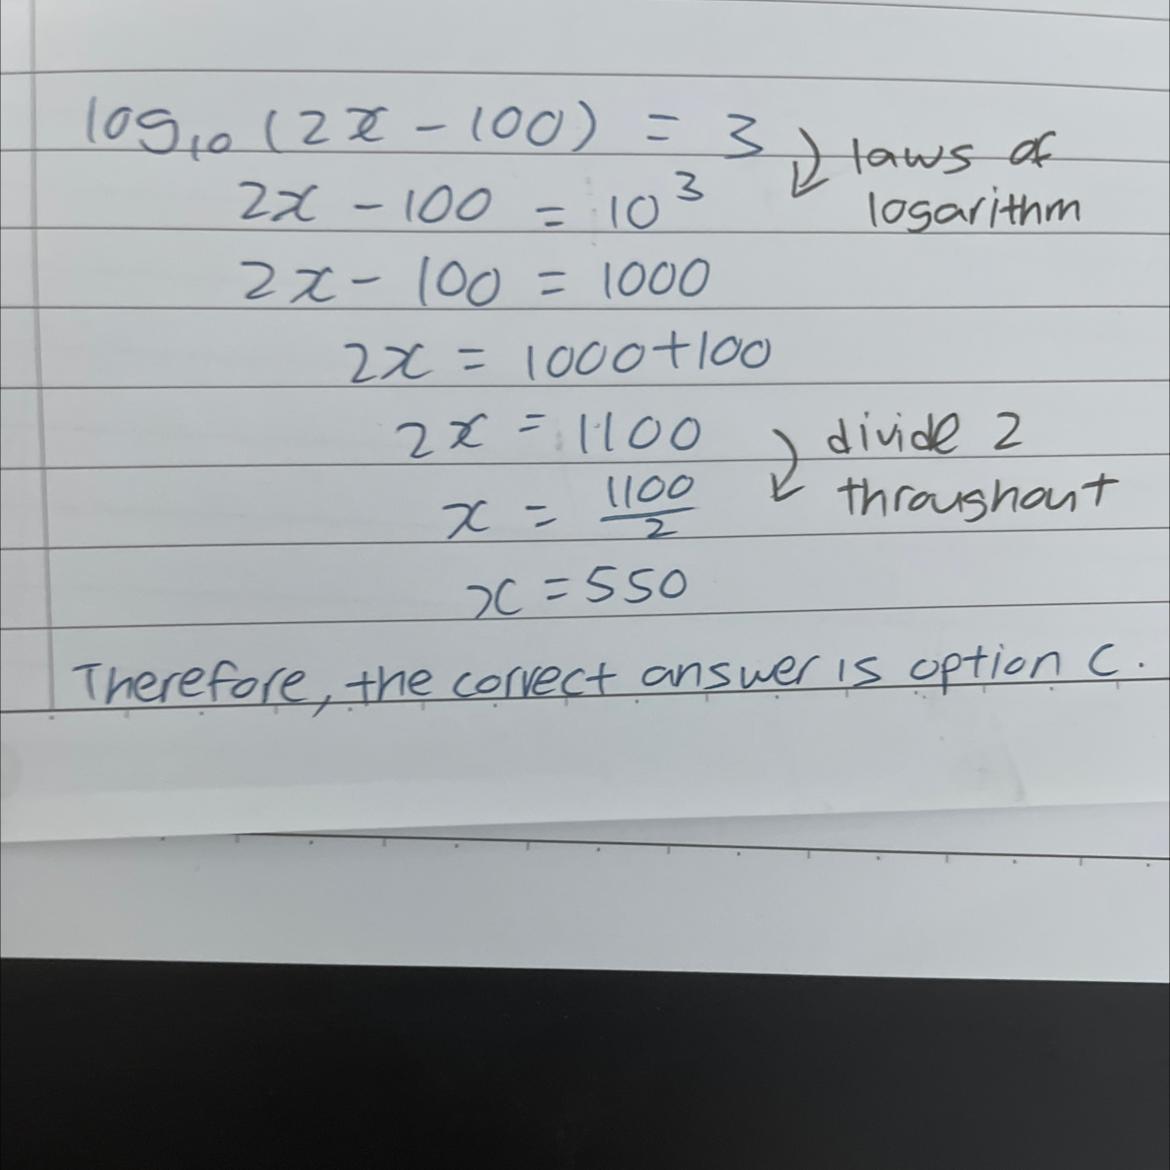 log₁₀ (2x - 100) = 3 laws of
2x - 100 = 10³ logarithm
2x - 100 = 1000
2x = 1000+100
2x = 1100 divide 2
x = 1100/2 throughout
x = 550
Therefore, the correct answer is option C.